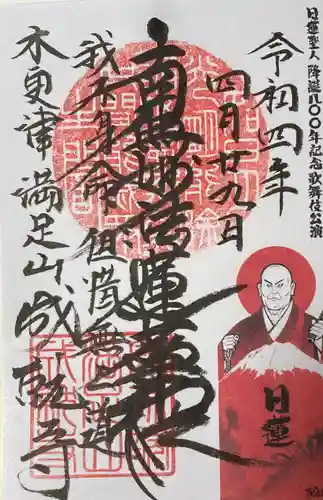 日蓮聖人 降誕八〇〇年記念 歌舞伎公演
令和四年
四月廿九日
南無妙法蓮華経
我不愛身命但惜無上道
木更津 満足山 成就寺
日蓮